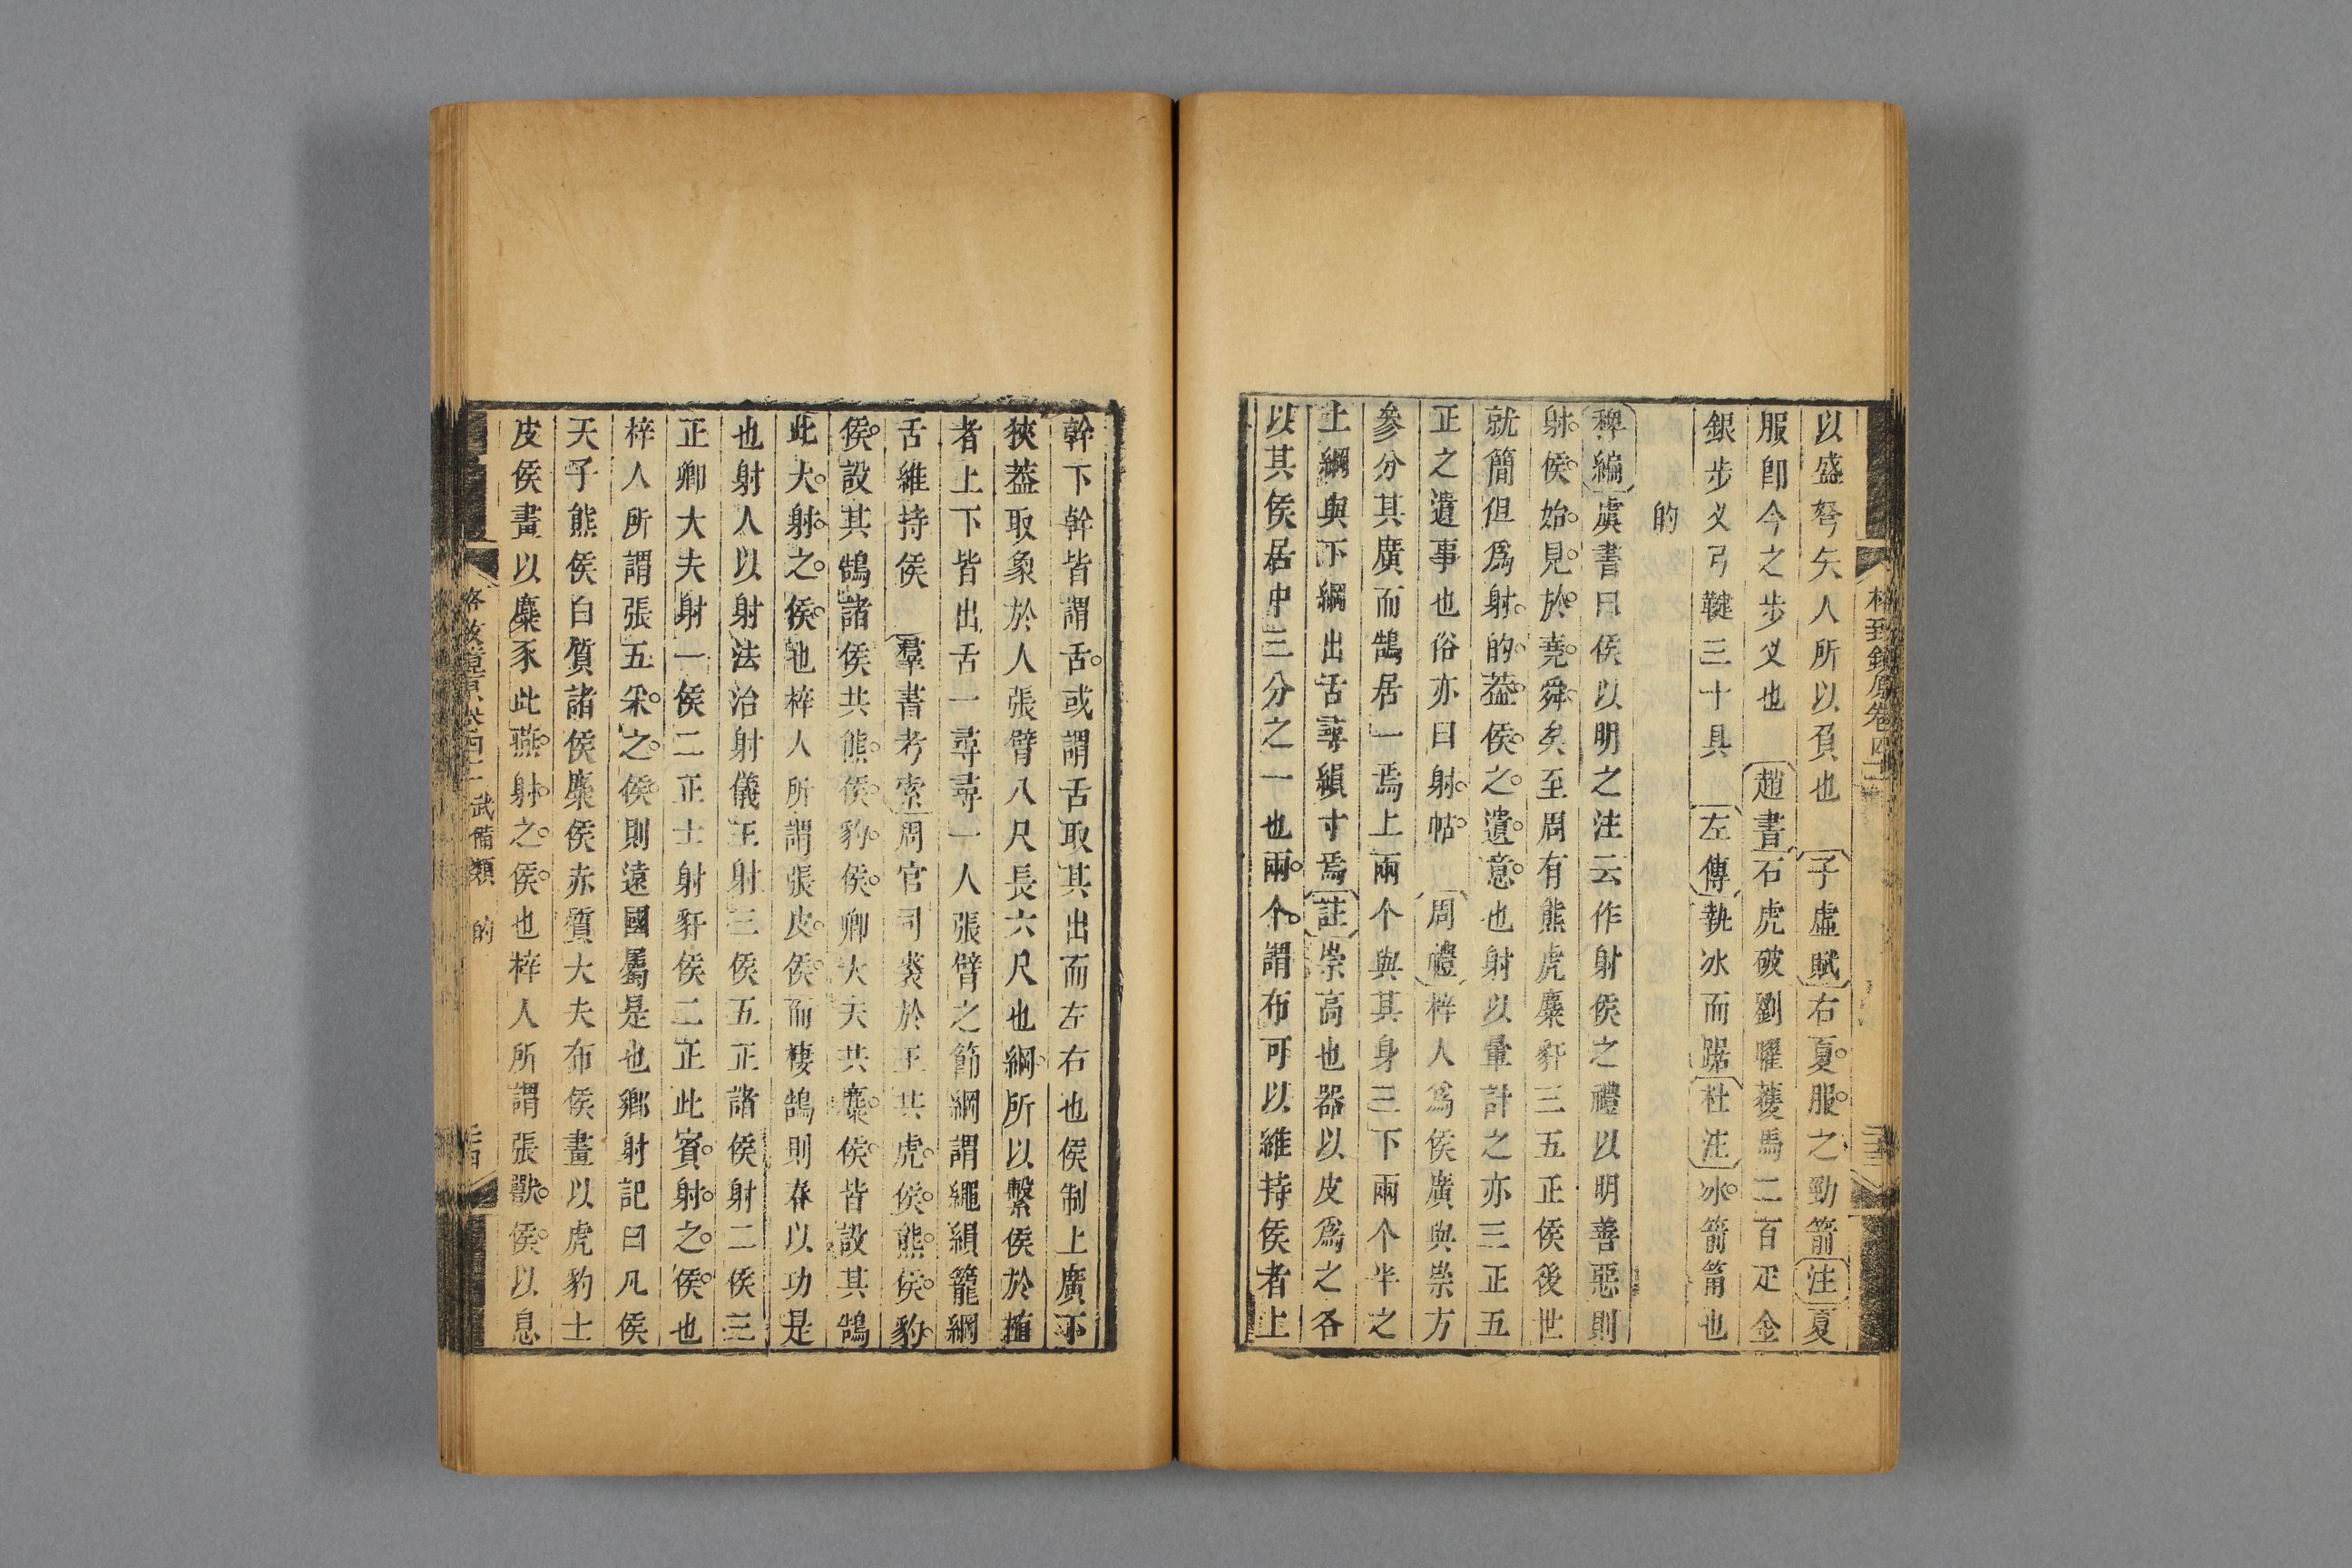 以盛弩矢人所以負也子虛賦右夏服之勁箭注夏
服卽今之步义也趙書石虎破劉曜獲馬二百疋金
銀步义弓鞬三十具左傳執冰而踞杜注冰箭筩也
的
稗編虞書曰侯以明之注云作射侯之禮以明善惡則
射侯始見於堯舜矣至周有熊虎麋豻三五正侯後世
就簡但爲射的葢侯之遺意也射以暈計之亦三正五
正之遺事也俗亦曰射帖周禮梓人爲侯廣與崇方
參分其廣而鵠居一焉上兩个與其身三下兩个半之
上綱與下綱出舌尋縜寸焉註崇高也器以皮爲之各
以其侯居中三分之一也兩个謂布可以維持侯者上
幹下幹皆謂舌或謂舌取其出而左右也侯制上廣下
狹葢取象於人張臂八尺長六尺也綱所以繫侯於植
者上下皆出舌一尋尋一人張臂之節綱謂繩縜籠綱
舌維持侯羣書考索周官司裘於王共虎侯熊侯豹
侯設其鵠諸侯共熊侯豹侯卿大夫共麋侯皆設其鵠
此大射之侯也梓人所謂張皮侯而棲鵠則春以功是
也射人以射法治射儀王射三侯五正諸侯射二侯三
正卿大夫射一侯二正士射豻侯二正此賓射之侯也
梓人所謂張五采之侯則遠國屬是也鄉射記曰凡侯
天子熊侯白質諸侯麋侯赤質大夫布侯畫以虎豹士
皮侯畫以麋豕此燕射之侯也梓人所謂張獸侯以息
武備類 的